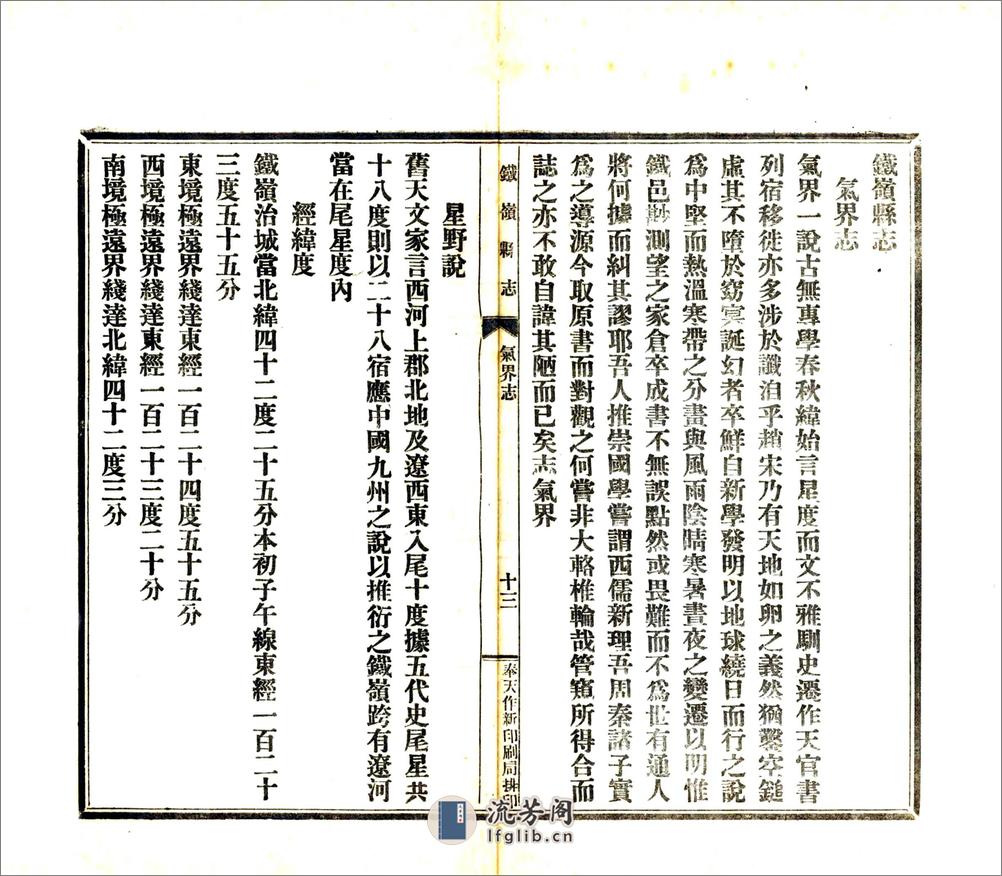 鐵嶺縣志
氣界志
氣界一說古無專學春秋緯始言星度而文不雅馴史遷作天官書
列宿移徙亦多涉於讖洎乎趙宋乃有天地如卵之義然猶鑿空鎚
虛其不墮於窈冥誕幻者卒鮮自新學發明以地球繞日而行之說
爲中堅而熱溫寒帶之分畫與風雨陰晴寒暑晝夜之變遷以明惟
鐵邑尠測望之家倉卒成書不無誤點然或畏難而不爲世有通人
將何據而糾其謬耶吾人推崇國學嘗謂西儒新理吾周秦諸子實
爲之導源今取原書而對觀之何嘗非大輅椎輪哉管窺所得合而
誌之亦不敢自諱其陋而已矣志氣界
鐵嶺縣志
氣界志
十三
奉天作新印刷局排印
星野說
舊天文家言西河上郡北地及遼西東入尾十度據五代史尾星共
十八度則以二十八宿應中國九州之說以推衍之鐵嶺跨有遼河
當在尾星度內
經緯度
鐵嶺治城當北緯四十二度二十五分本初子午線東經一百二十
三度五十五分
東境極遠界綫達東經一百二十四度五十五分
西境極遠界綫達東經一百二十三度二十分
南境極遠界綫達北緯四十二度三分
流芳阁
lfglib.cn